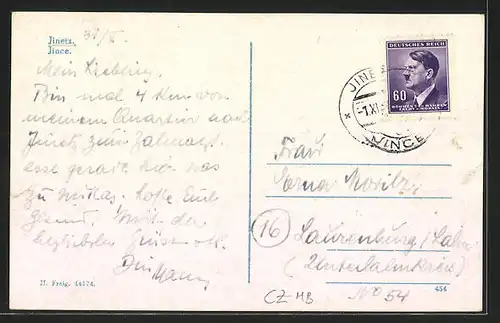 Jinetz.
Jince.
Mein Liebling.
Bin mal 4 km von
meinem Quartier nach
Jinetz zum Zahnarzt.
esse gerade hier was
zu Mittag. Hoffe Euch
gesund. Mit den
herzlichsten Grüssen
Dein Mann
H. Freig. 44174.
DEUTSCHES REICH
60
JINE
-7.XI
JINCE
Frau
Erna Moritz
16
Laurenburg/Lahn
(Unterlahnkreis)
No 54
CZ MB
454